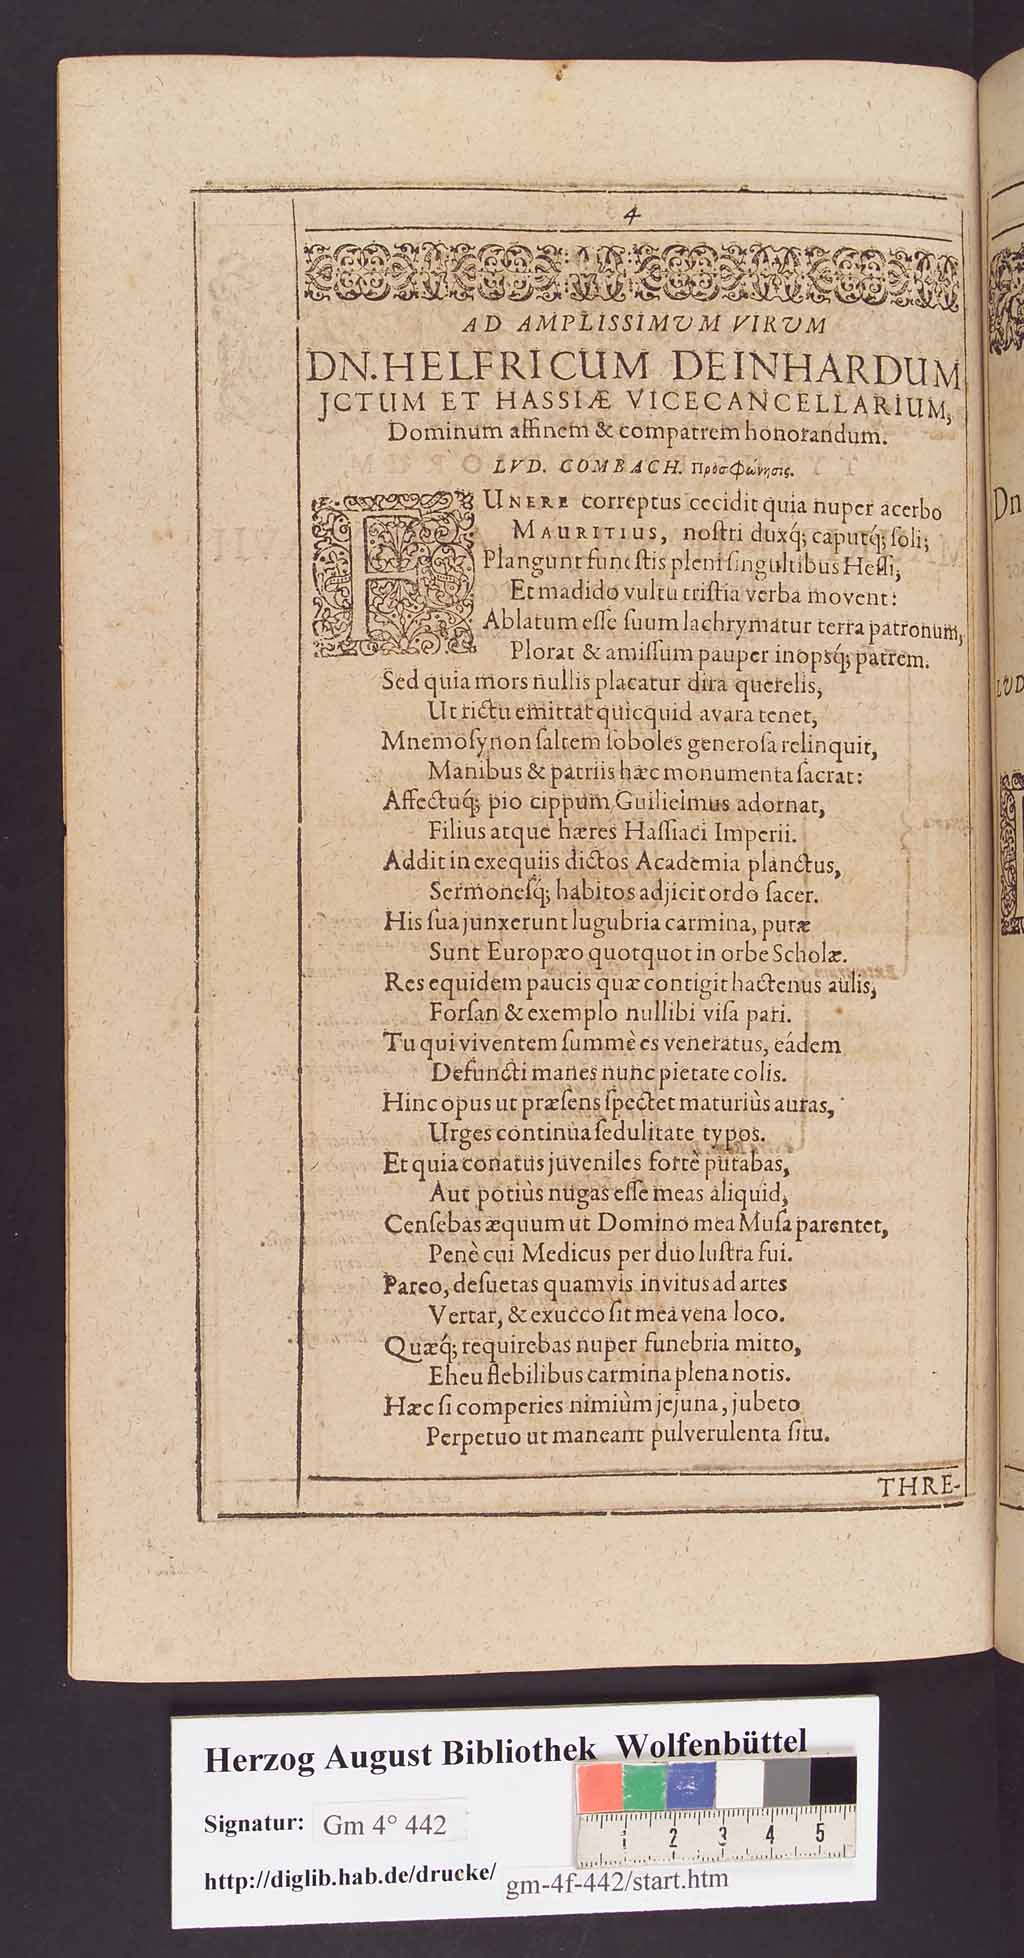 4
AD AMPLISSIMUM VIRUM
DN. HELFRICUM DEINHARDUM
JCTUM ET HASSIÆ VICECANCELLARIUM,
Dominum affinem & compatrem honorandum.
LVD. COMBACH. Προσφώνησις.
FUNERE correptus cecidit quia nuper acerbo
MAURITIUS, noſtri duxq́; caputq́; ſoli;
Plangunt funeſtis pleni ſingultibus Heſſi,
Et madido vultu triſtia verba movent:
Ablatum eſſe ſuum lachrymatur terra patronum,
Plorat & amiſſum pauper inopsq́; patrem.
Sed quia mors nullis placatur dira querelis,
Ut rictu emittat quicquid avara tenet,
Mnemoſynon ſaltem ſoboles generoſa relinquit,
Manibus & patriis hæc monumenta ſacrat:
Affectuq́; pio cippum Guilielmus adornat,
Filius atque hæres Haſſiaci Imperii.
Addit in exequiis dictos Academia planctus,
Sermoneſq́; habitos adjicit ordo ſacer.
His ſua junxerunt lugubria carmina, putæ
Sunt Europæo quotquot in orbe Scholæ.
Res equidem paucis quæ contigit hactenus aulis,
Forſan & exemplo nullibi viſa pari.
Tu qui viventem ſummè es veneratus, eádem
Defuncti manes nunc pietate colis.
Hinc opus ut præſens ſpectet maturiùs auras,
Urges continua ſedulitate typos.
Et quia conatus juveniles fortè putabas,
Aut potiùs nugas eſſe meas aliquid,
Cenſebas æquum ut Domino mea Muſa parentet,
Penè cui Medicus per duo luſtra fui.
Pareo, deſuetas quamvis invitus ad artes
Vertar, & exucco ſit mea vena loco.
Quæq́; requirebas nuper funebria mitto,
Eheu flebilibus carmina plena notis.
Hæc ſi comperies nimiùm jejuna, jubeto
Perpetuo ut maneant pulverulenta ſitu.
THRE-
Dn
LUD
Herzog August Bibliothek Wolfenbüttel
Signatur: Gm 4° 442
1 2 3 4 5
http://diglib.hab.de/drucke/ gm-4f-442/start.htm